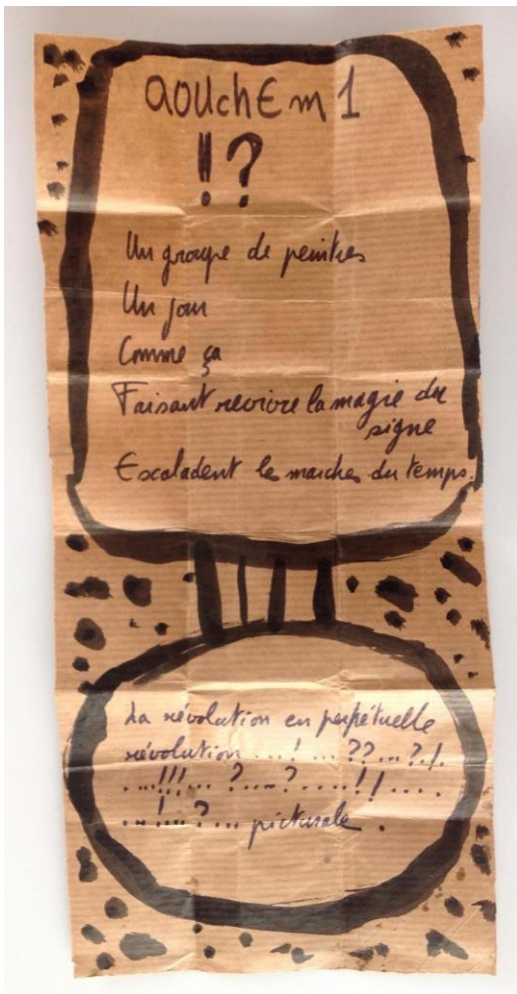 aouchEm 1
!?
Un groupe de peintres
Un jour
Comme ça
Faisant revivre la magie du
signe
Escaladent les marches du temps.
La révolution en perpétuelle
révolution ...! ... ?? ... ?!.
. ...!!! ... ? ... ? .... !! ....
. ..! ... ? ... picturale .